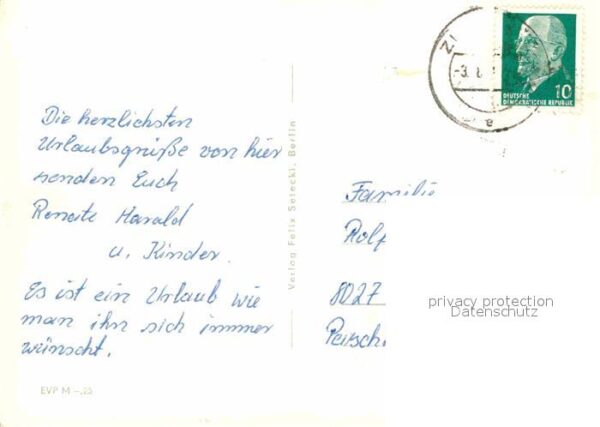 Die herzlichsten
Urlaubsgrüße von hier
senden Euch
Renate Harald
u. Kinder.
Es ist ein Urlaub wie
man ihn sich immer
wünscht.
EVP M -,25
Verlag Felix Setecki, Berlin
ZI
-3. 8.
e
10
DEUTSCHE
DEMOKRATISCHE REPUBLIK
Familie
Rolf
8027
privacy protection
Datenschutz